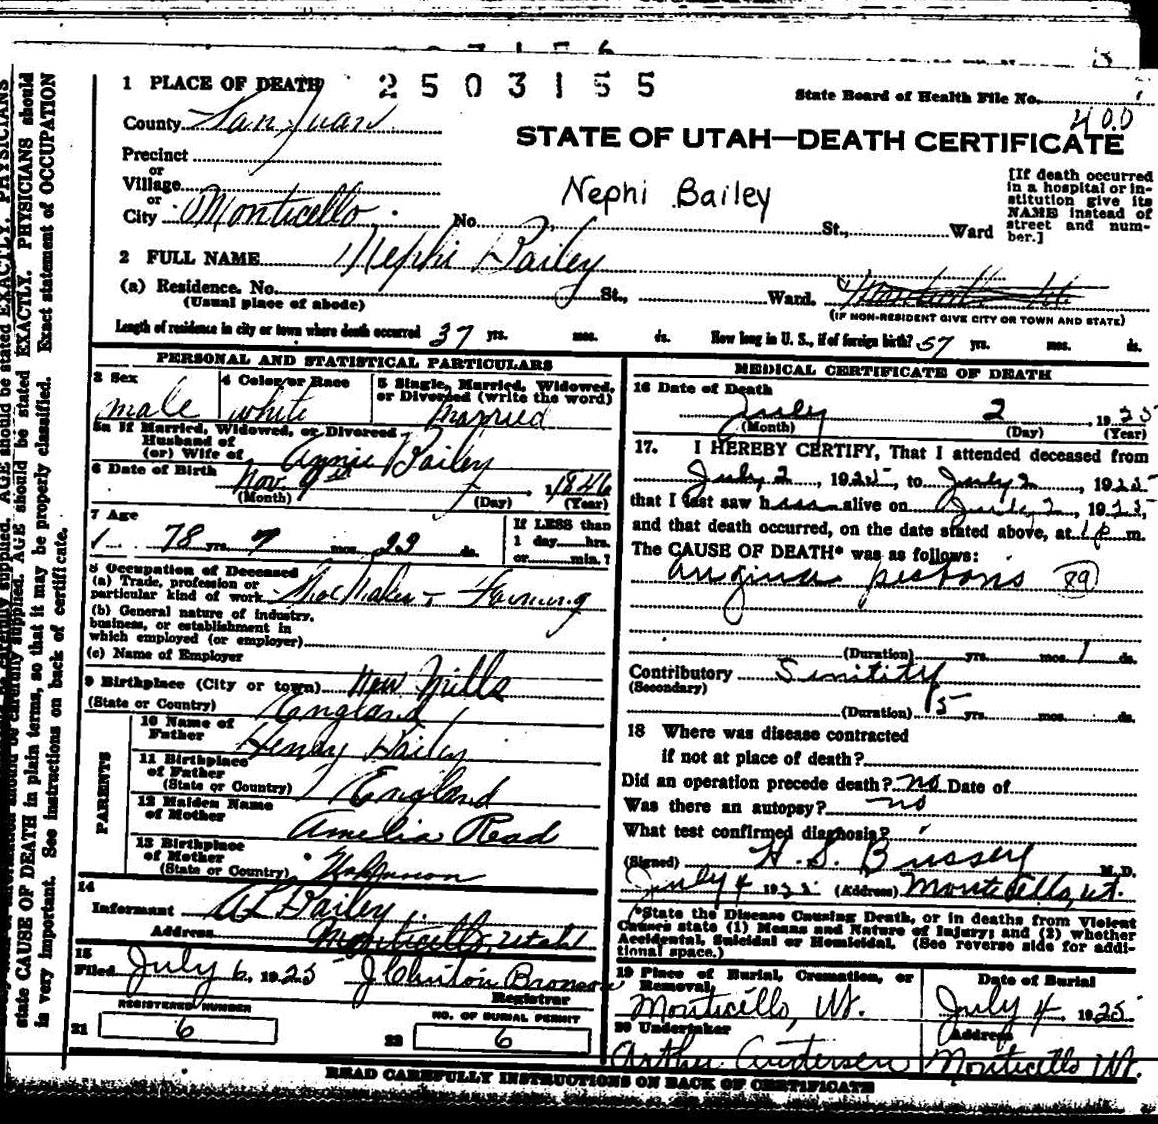 2503155
1 PLACE OF DEATH
State Board of Health File No.
400
County San Juan
STATE OF UTAH—DEATH CERTIFICATE
Precinct
or
Village
or
City Monticello No. St., Ward
Nephi Bailey
[If death occurred
in a hospital or in-
stitution give its
NAME instead of
street and num-
ber.]
2 FULL NAME Nephi Bailey
(a) Residence. No. St., Ward.
(Usual place of abode)
(IF NON-RESIDENT GIVE CITY OR TOWN AND STATE)
Length of residence in city or town where death occurred 37 yrs. mos. ds. How long in U. S., if of foreign birth? 57 yrs. mos. ds.
PERSONAL AND STATISTICAL PARTICULARS
3 Sex
male
4 Color or Race
white
5 Single, Married, Widowed,
or Divorced (write the word)
Married
5a If Married, Widowed, or Divorced
Husband of
(or) Wife of Annie Bailey
6 Date of Birth Nov 9 1846
(Month) (Day) (Year)
7 Age
78 yrs. 7 mos. 23 ds.
If LESS than
1 day hrs.
or min.?
8 Occupation of Deceased
(a) Trade, profession or
particular kind of work Farming
(b) General nature of industry,
business, or establishment in
which employed (or employer)
(c) Name of Employer
9 Birthplace (City or town) New Mills
(State or Country) England
PARENTS
10 Name of
Father Henry Bailey
11 Birthplace
of Father
(State or Country) England
12 Maiden Name
of Mother Amelia Read
13 Birthplace
of Mother
(State or Country) Unknown
14
Informant A L Bailey
Address Monticello, Utah
15
Filed July 6, 1925 J Clinton Bronson
Registrar
REGISTERED NUMBER
21 6
NO. OF BURIAL PERMIT
22 6
MEDICAL CERTIFICATE OF DEATH
16 Date of Death
July 2, 1925
(Month) (Day) (Year)
17. I HEREBY CERTIFY, That I attended deceased from
July 2, 1925, to July 2, 1925
that I last saw h alive on July 2, 1925,
and that death occurred, on the date stated above, at 1 p m.
The CAUSE OF DEATH* was as follows:
angina 89
(Duration) yrs. mos. 1 ds.
Contributory
(Secondary)
(Duration) 15 yrs. mos. ds.
18 Where was disease contracted
if not at place of death?
Did an operation precede death? no Date of
Was there an autopsy? no
What test confirmed diagnosis?
(Signed) H. S. Bussey M.D.
July 4 192 (Address) Monticello, Ut.
*State the Disease Causing Death, or in deaths from Violent
Causes state (1) Means and Nature of Injury; and (2) whether
Accidental, Suicidal or Homicidal. (See reverse side for addi-
tional space.)
19 Place of Burial, Cremation, or
Removal,
Monticello, Ut.
Date of Burial
July 4, 1925
20 Undertaker
Arthur Andersen
Address
Monticello Ut.
READ CAREFULLY INSTRUCTIONS ON BACK OF CERTIFICATE
AGE should be stated EXACTLY. PHYSICIANS should
state CAUSE OF DEATH in plain terms, so that it may be properly classified. Exact statement of OCCUPATION
is very important. See instructions on back of certificate.